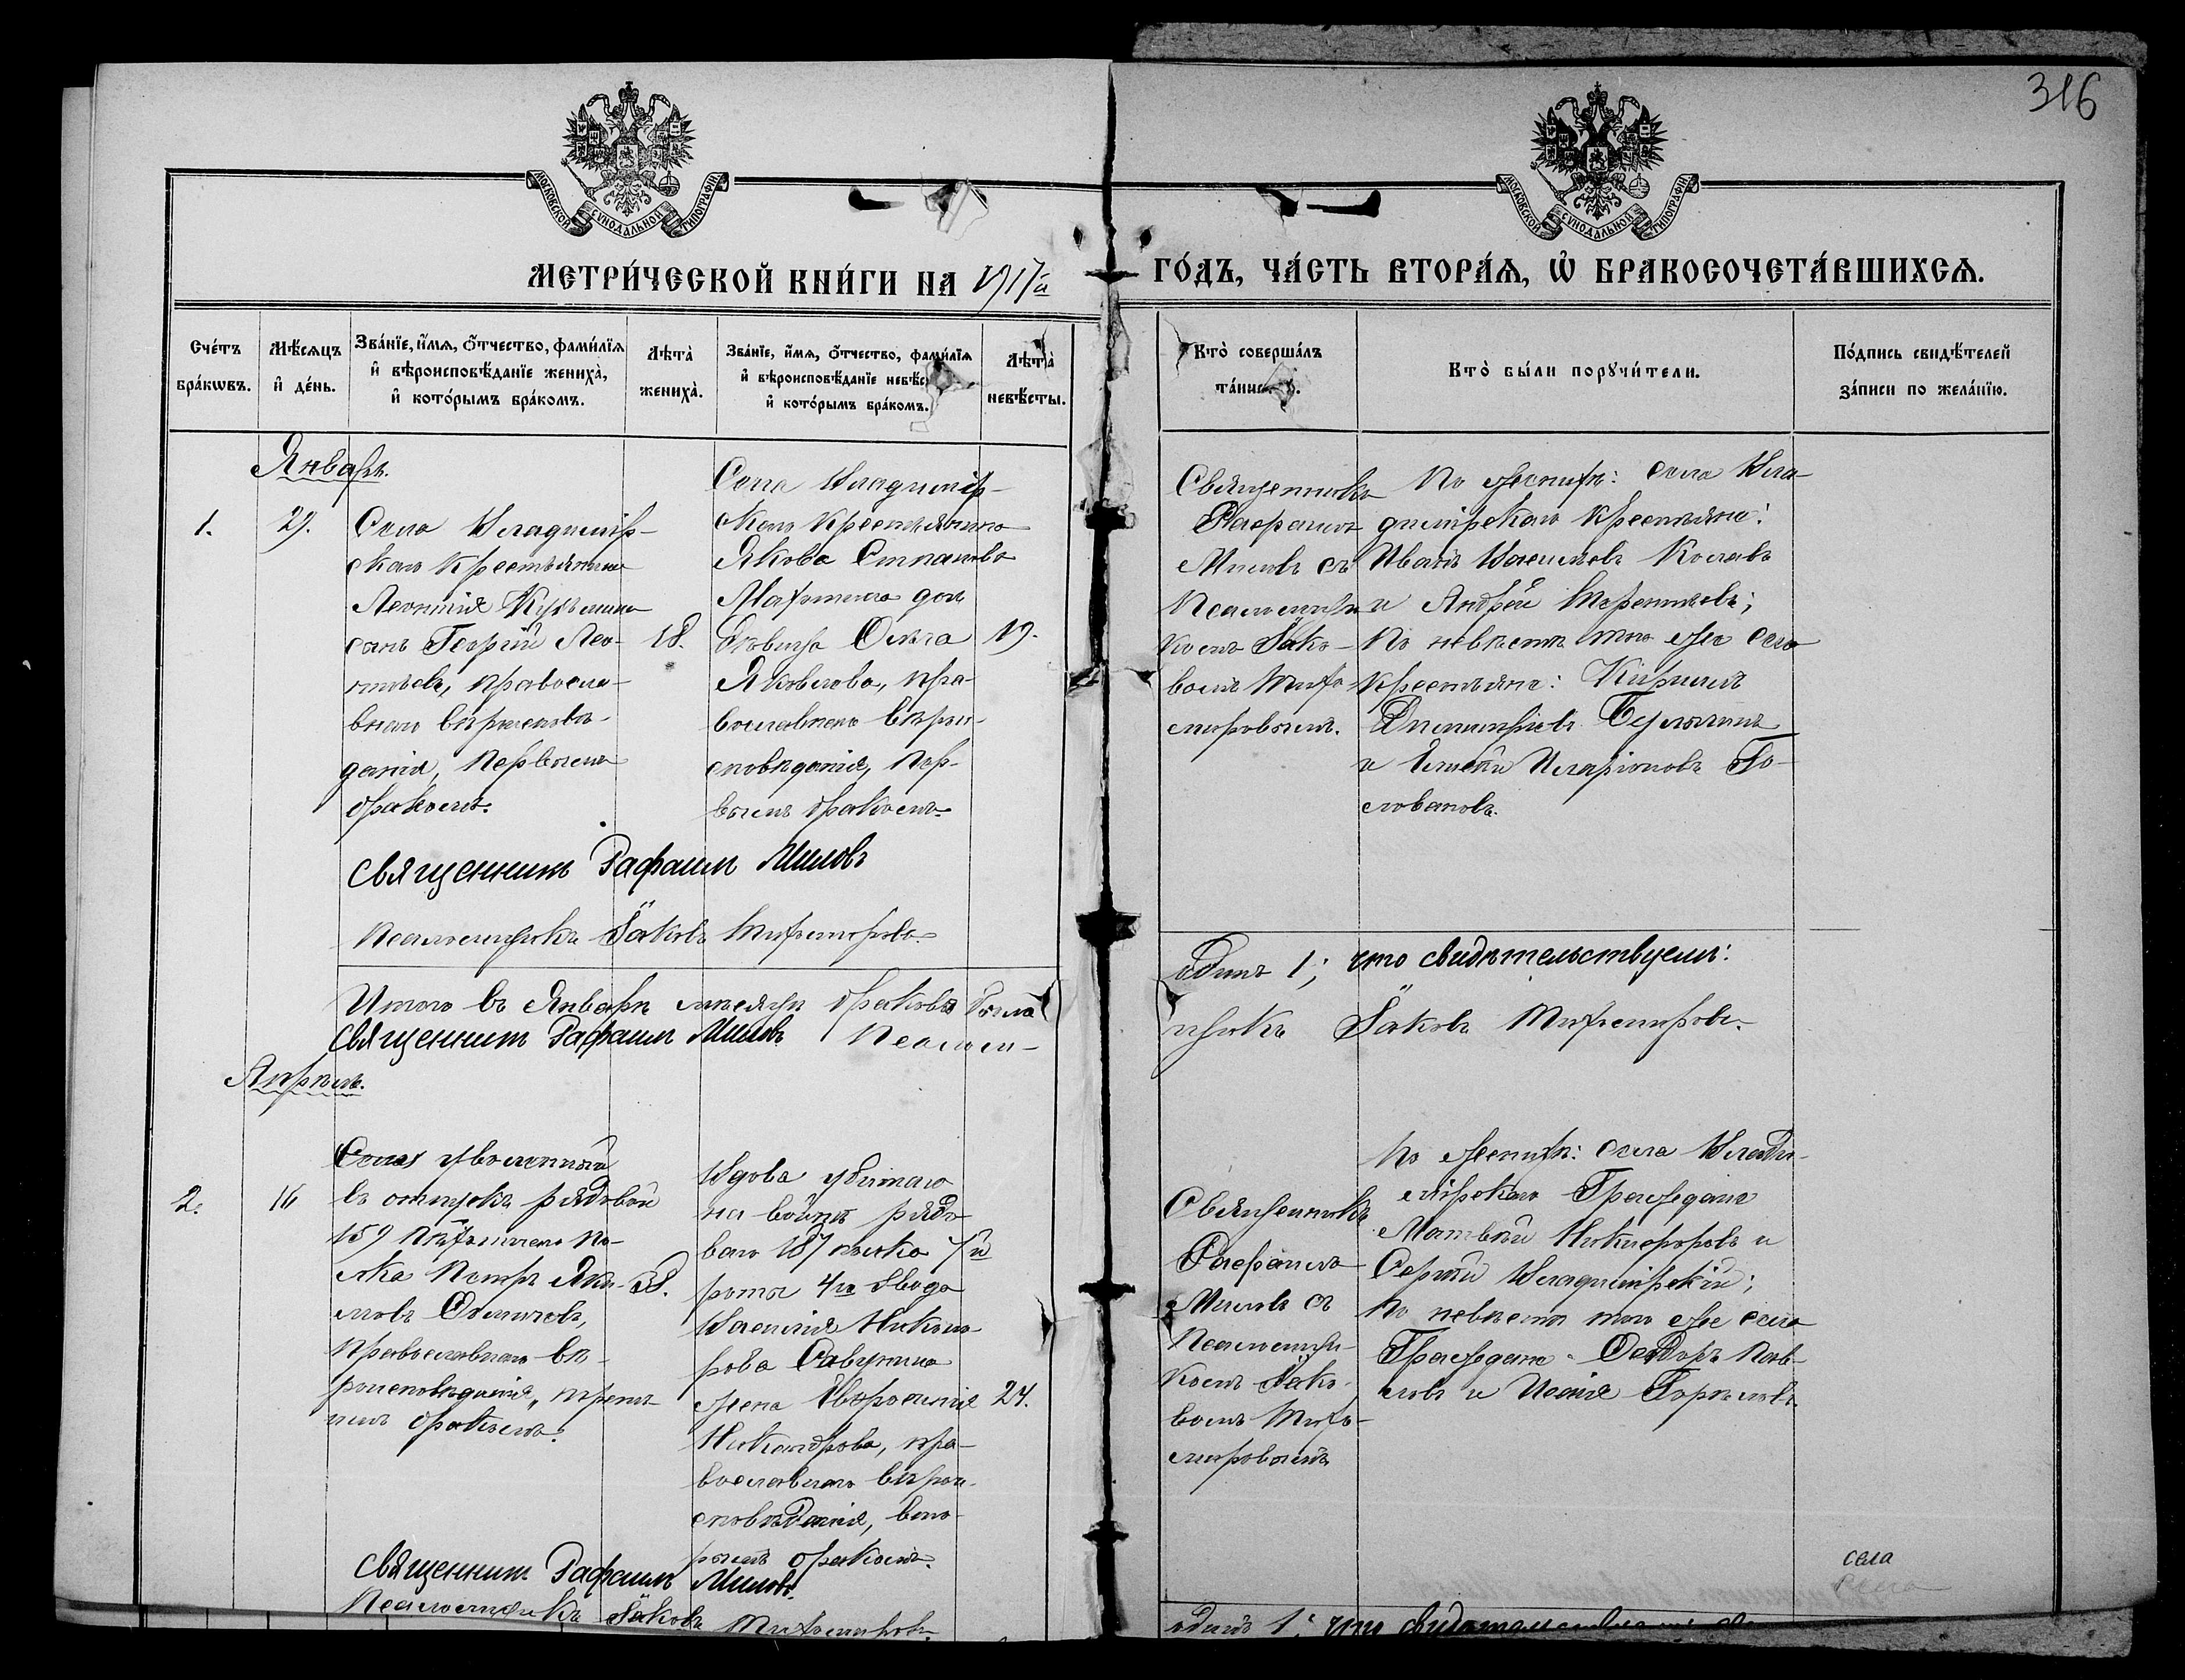 316
МОСКОВСКОЙ СѴНОДАЛЬНОЙ ТИПОГРАФІИ
МОСКОВСКОЙ СѴНОДАЛЬНОЙ ТИПОГРАФІИ
МЕТРИ́ЧЕСКОЙ КНИ́ГИ НА 1917й
ГО́ДЪ, ЧА́СТЬ ВТОРА́Ѧ, Ѡ҆ БРАКОСОЧЕТА́ВШИХСѦ.
Сче́тъ
бра́кѡвъ.
Мѣ́сѧцъ
и҆ де́нь.
Зва́нїе, и҆́мѧ, ѻ҆́тчество, фами́лїѧ
и҆ вѣроисповѣ́данїе жениха̀,
и҆ кото́рымъ бра́комъ.
Лѣта̀
жениха̀.
Зва́нїе, и҆́мѧ, ѻ҆́тчество, фами́лїѧ
и҆ вѣроисповѣ́данїе невѣ́с
и҆ кото́рымъ бра́комъ.
Лѣта̀
невѣ́сты.
Кто̀ соверша́лъ
та́инс
Кто̀ бы́ли порꙋчи́тели.
По́дпись свидѣ́телей
за́писи по жела́нїю.
Январь.
1.
29.
Села Владимір-
скаго крестьянина
Леонтія Кузьмина
сынъ Георгій Лео-
нтьевъ, православ-
наго вѣроисповѣ-
данія, первымъ
бракомъ.
18.
Села Владимір-
скаго крестьянина
Якова Степанова
дочь
дѣвица Ольга
Яковлева, пра-
вославнаго вѣрои-
сповѣданія, пер-
вымъ бракомъ.
19.
Священникъ
Рафаилъ
Миловъ съ
псаломщи-
комъ Іако-
вомъ Тихо-
мировымъ.
По женихѣ: села Вла-
димірскаго крестьяне:
Иванъ Васильевъ
и Андрей Терентьевъ;
по невѣстѣ того же села
крестьяне: Кириллъ
Димитріевъ
и Иларіоновъ Го-
ловановъ.
Священникъ Рафаилъ Миловъ
Псаломщикъ Іаковъ Тихомировъ.
Итого въ Январѣ мѣсяцѣ браковъ было
одинъ 1; что свидѣтельствуемъ:
Священникъ Рафаилъ Миловъ Псалом-
щикъ Іаковъ Тихомировъ.
Апрѣль.
2.
16
уволенный
въ отпускъ рядовой
159 пѣхотнаго по-
лка Петръ Яки-
мовъ
православнаго вѣ-
роисповѣданія, треть-
имъ бракомъ.
38.
Вдова убитаго
на войнѣ рядо-
ваго 187 полка 7й
роты 4го взвода
Василія Никано-
рова
жена Евфросинія
Никандрова, пра-
вославнаго вѣрои-
сповѣданія, вто-
рымъ бракомъ.
24.
Священникъ
Рафаилъ
Миловъ съ
псаломщи-
комъ Іако-
вомъ Тихо-
мировымъ
По женихѣ: села Влади-
мірскаго Граждане
Матвѣй Никифоровъ и
Сергѣй Владимірскій;
по невѣстѣ того же села
Граждане Ѳедоръ Пав-
ловъ и
Священникъ Рафаилъ Миловъ
Псаломщикъ Іаковъ Тихомировъ.
села
одинъ 1; что